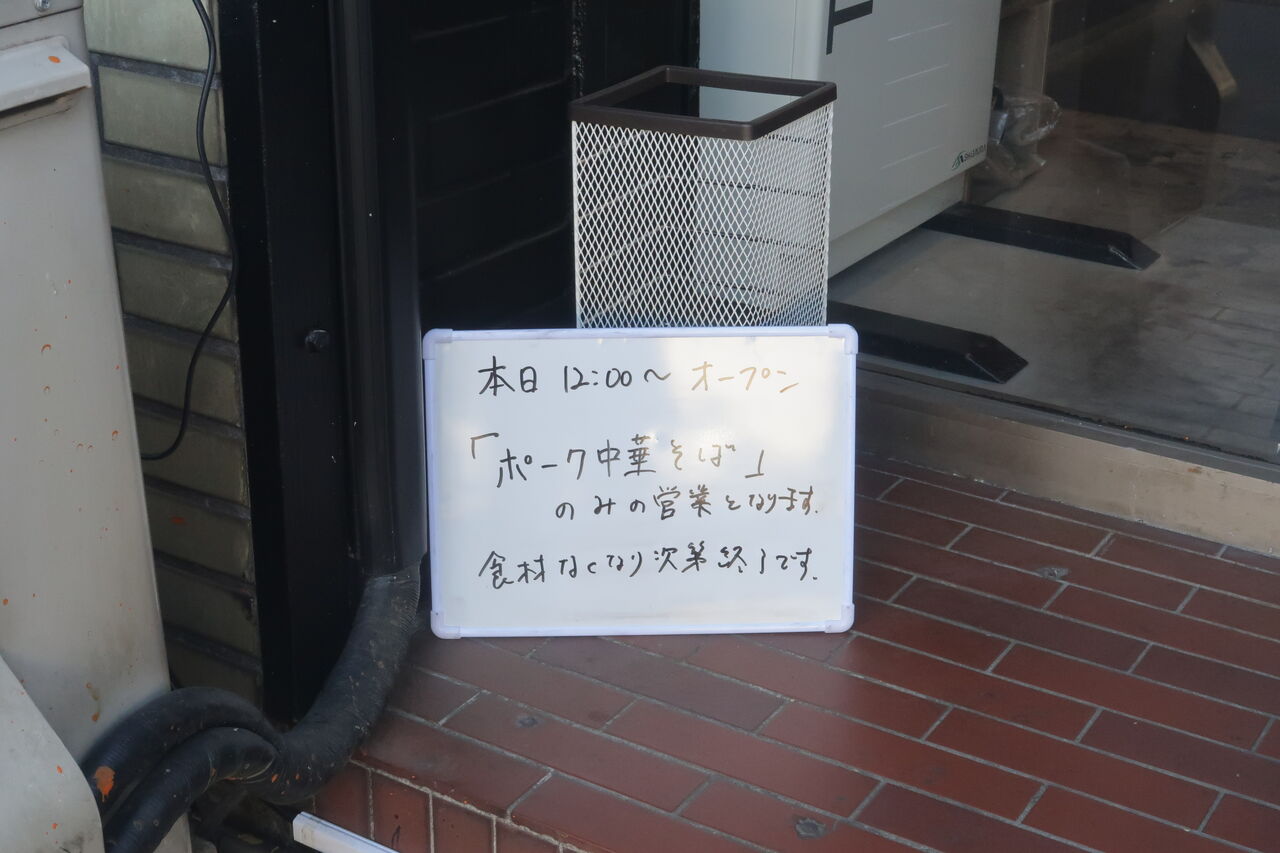 本日 12:00～ オープン
「ポーク中華そば」
のみの営業となります.
食材なくなり次第終了です.